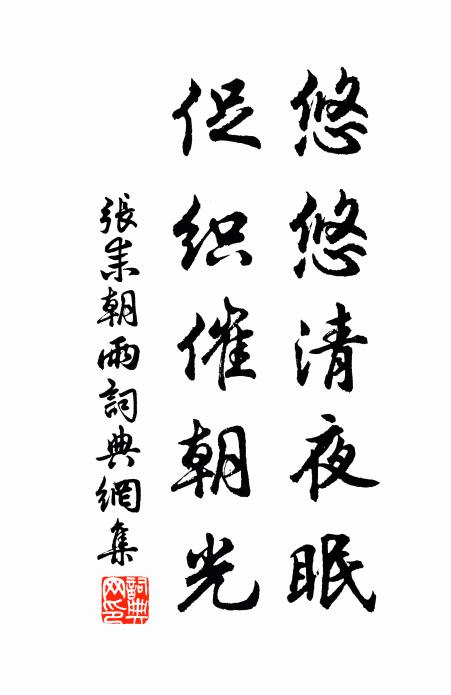 悠悠清夜眠
促织催朝光
張耒朝雨詞典網集
詞典網印